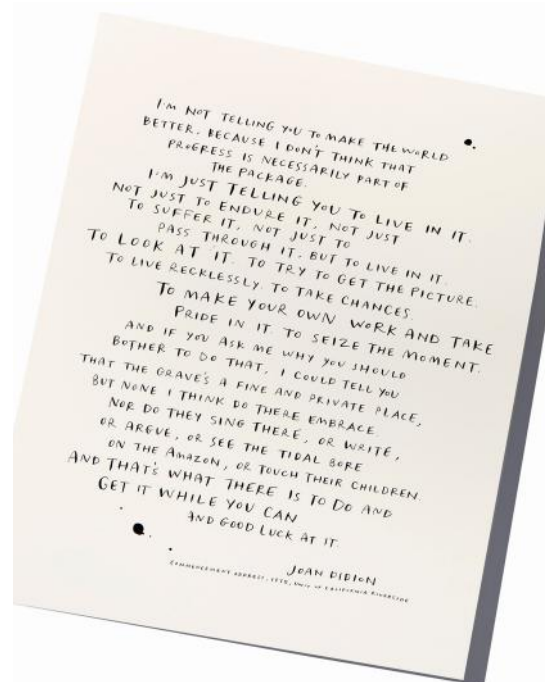 I'M NOT TELLING YOU TO MAKE THE WORLD
BETTER, BECAUSE I DON'T THINK THAT
PROGRESS IS NECESSARILY PART OF
THE PACKAGE.
I'M JUST TELLING YOU TO LIVE IN IT.
NOT JUST TO ENDURE IT, NOT JUST
TO SUFFER IT, NOT JUST TO
PASS THROUGH IT, BUT TO LIVE IN IT.
TO LOOK AT IT. TO TRY TO GET THE PICTURE.
TO LIVE RECKLESSLY. TO TAKE CHANCES.
TO MAKE YOUR OWN WORK AND TAKE
PRIDE IN IT. TO SEIZE THE MOMENT.
AND IF YOU ASK ME WHY YOU SHOULD
BOTHER TO DO THAT, I COULD TELL YOU
THAT THE GRAVE'S A FINE AND PRIVATE PLACE,
BUT NONE I THINK DO THERE EMBRACE.
NOR DO THEY SING THERE, OR WRITE,
OR ARGUE, OR SEE THE TIDAL BORE
ON THE AMAZON, OR TOUCH THEIR CHILDREN.
AND THAT'S WHAT THERE IS TO DO AND
GET IT WHILE YOU CAN
AND GOOD LUCK AT IT.
JOAN DIDION
COMMENCEMENT ADDRESS, 1975, UNIV OF CALIFORNIA RIVERSIDE